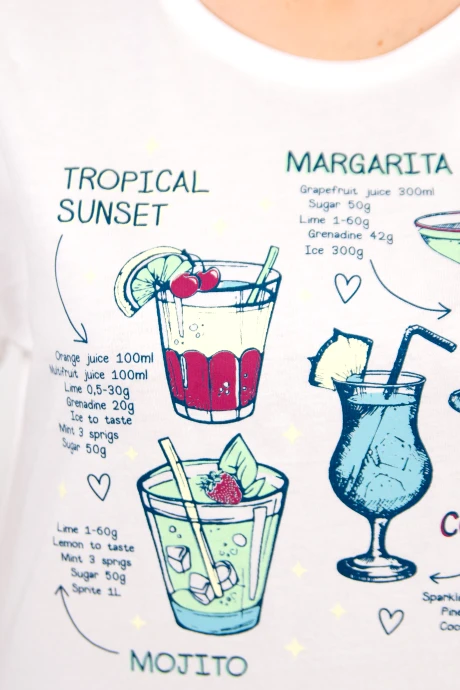 TROPICAL
SUNSET
Orange juice 100ml
Multifruit juice 100ml
Lime 0,5-30g
Grenadine 20g
Ice to taste
Mint 3 sprigs
Sugar 50g
MARGARITA
Grapefruit juice 300ml
Sugar 50g
Lime 1-60g
Grenadine 42g
Ice 300g
Lime 1-60g
Lemon to taste
Mint 3 sprigs
Sugar 50g
Sprite 1L
MOJITO